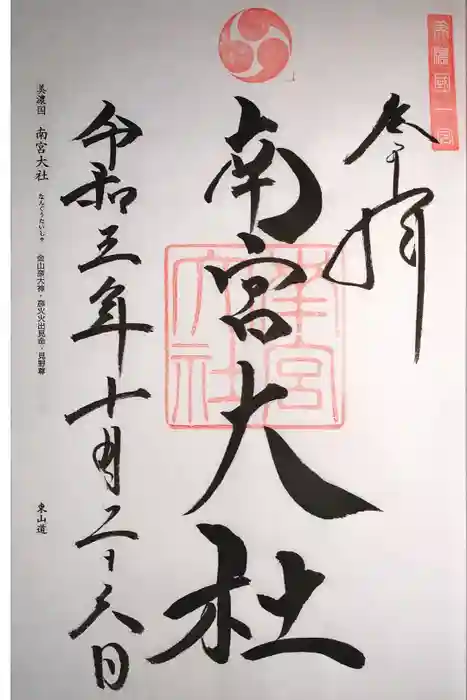 美濃國一宮
奉拝
南宮大社
南宮大社
令和三年十月二十八日
美濃国 南宮大社 なんぐうたいしゃ 金山彦大神・彦火火出見命・見野尊 東山道